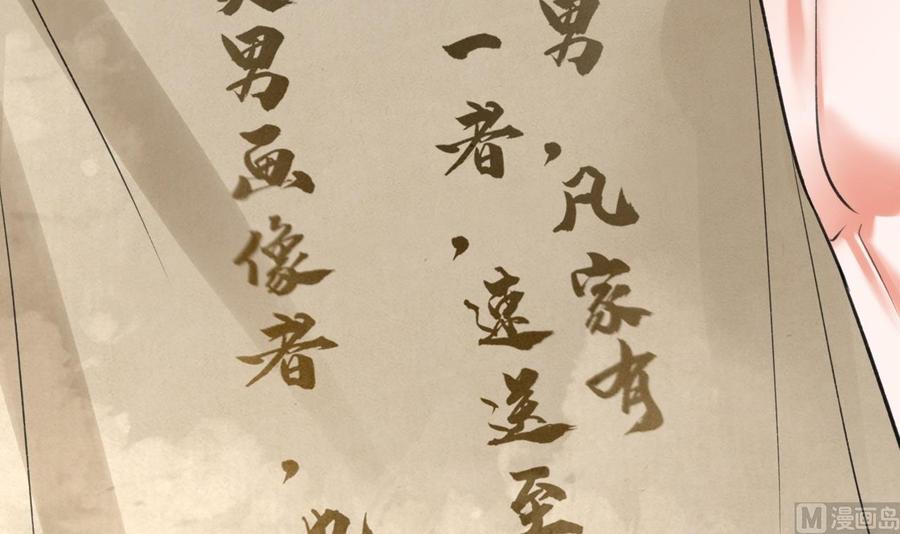 男，凡家有
一者，速送至
男画像者，
漫画岛